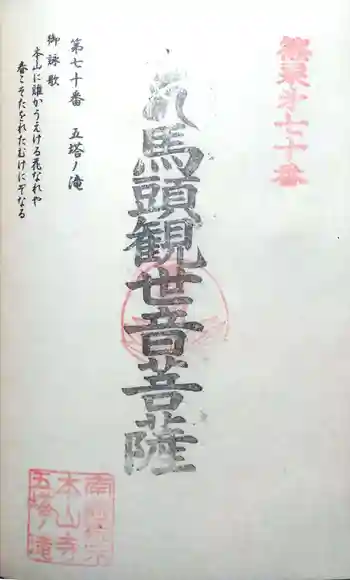 篠栗第七十番
馬頭観世音菩薩
第七十番　五塔ノ滝
御詠歌
本山に誰かうえける花なれや
春こそたをれたむけにぞなる
本山寺
五塔ノ滝